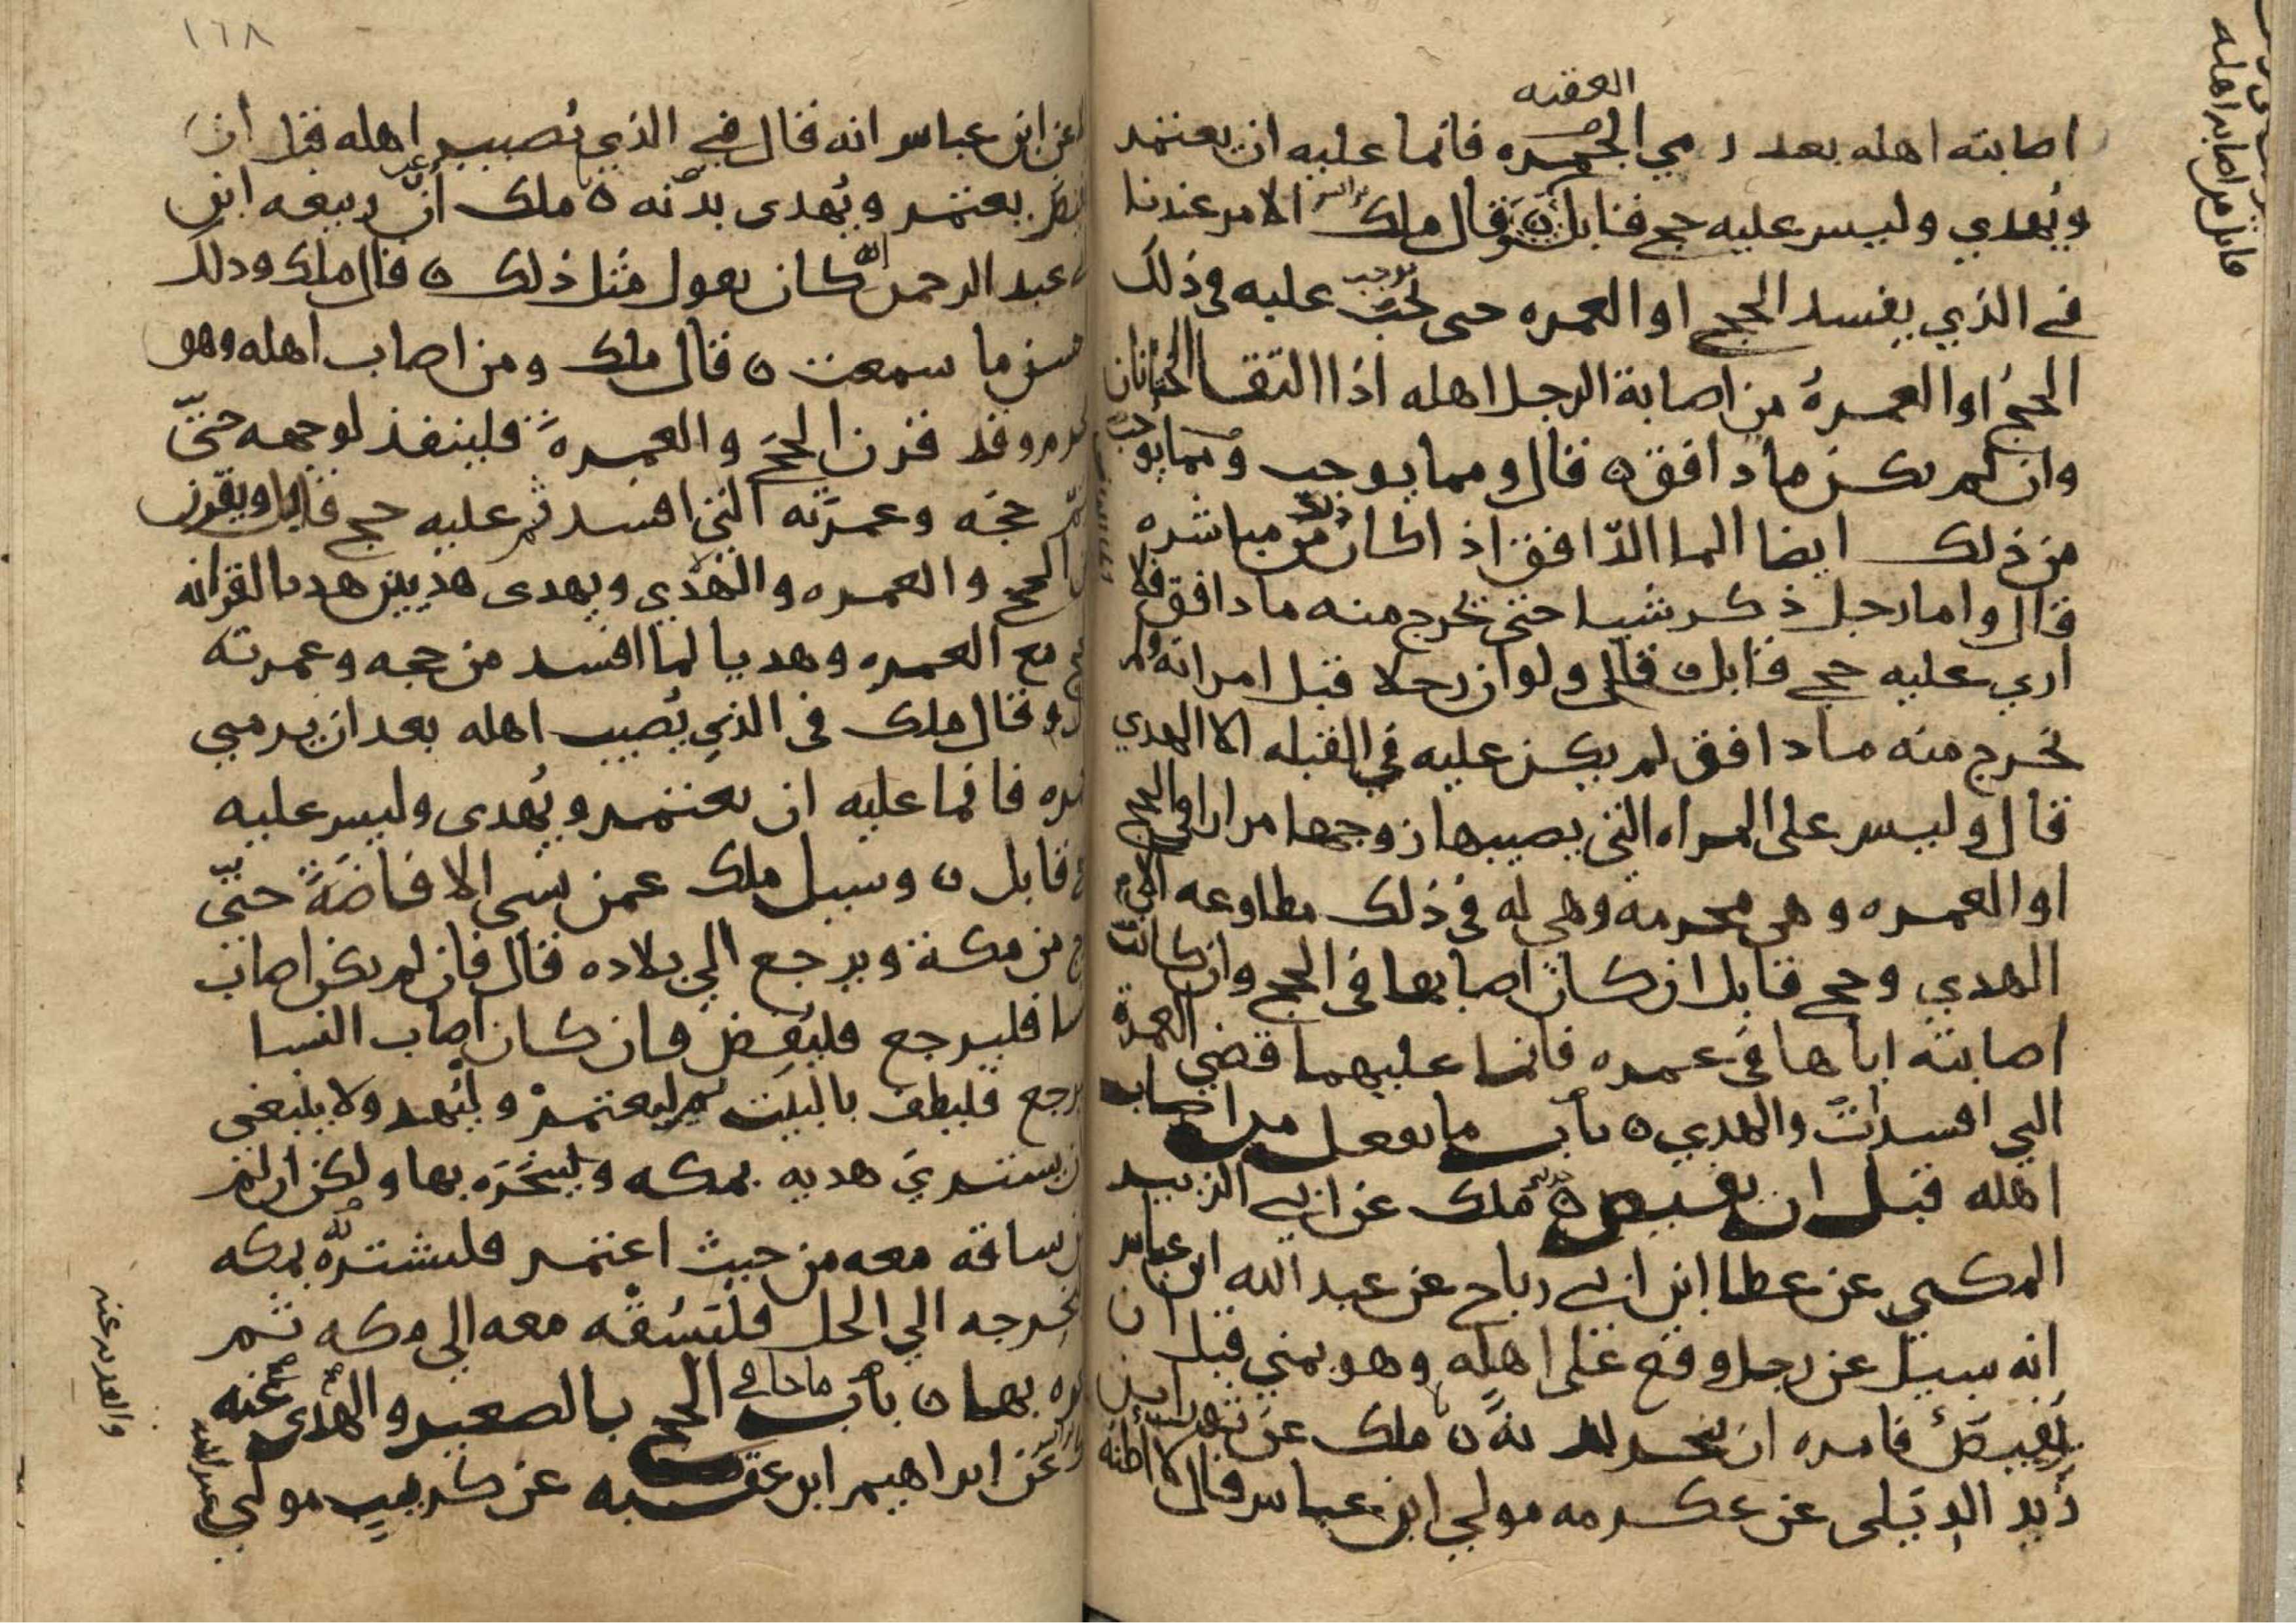 العقبه
اصابته اهله بعد رمي الجمره فانما عليه ان يعتمر
ويهدي وليس عليه حج قابل ٥ وقال ملك الامر عندنا
في الذي يفسد الحج او العمره حتى يجب عليه في ذلك
الحج او العمرة من اصابة الرجل اهله اذا التقا الختانان
وان لم يكن ما دافق ٥ قال ومما يوجب
من ذلك ايضا الما الدافق اذا كان من مباشره
قال واما رجل ذكر شيا حتى يخرج منه ما دافق فلا
اري عليه حج قابل ٥ قال ولو ان رجلا قبل امراته ولم
يخرج منه ما دافق لم يكن عليه في القبله الا الهدي
قال وليس على المراه التي يصيبها زوجها مرارا في الحج
او العمره وهي محرمه وهي له في ذلك مطاوعه الا
الهدي وحج قابل ان كان اصابها في الحج وان كانت
اصابته اياها في عمره فانما عليهما قضي العمرة
التي افسدت والهدي ٥ باب ما يفعل من اصاب
اهله قبل ان يفيض ٥ ملك عن ابي الزبير
المكي عن عطا ابن ابي رباح عن عبد الله ابن عباس
انه سيل عن رجل وقع على اهله وهو بمني قبل ان
يفيض فامره ان ينحر بدنة ٥ ملك عن ثور ابن
زيد الديلي عن عكرمه مولي ابن عباس قال لا اظنه
ما يفعل من اصاب اهله
١٦٨
عن ابن عباس انه قال في الذي يصيب اهله قبل ان
يفيض يعتمر ويهدى بدنه ٥ ملك ان ربيعه ابن
عبد الرحمن كان يقول مثل ذلك ٥ قال ملك وذلك
ما سمعت ٥ قال ملك ومن اصاب اهله وهو
وقد قرن الحج والعمرة فلينفذ لوجهه حتى
حجه وعمرته التي افسد ثم عليه حج قابل ويقرن
الحج والعمره والهدي ويهدى هديين هديا لقرانه
مع العمره وهديا لما افسد من حجه وعمرته
وقال ملك في الذي يصيب اهله بعد ان يرمي
فانما عليه ان يعتمر ويهدى وليس عليه
قابل ٥ وسيل ملك عمن نسي الافاضة حتى
من مكة ويرجع الي بلاده قال فان لم يكن اصاب
فليرجع فليفض فان كان اصاب النسا
رجع فليطف بالبيت ثم ليعتمر وليهد ولا ينبغي
يشتري هديه بمكه وينحره بها ولكن ان لم
ساقه معه من حيث اعتمر فليشتره بمكه
يخرجه الي الحل فليسقه معه الي مكه ثم
بها ٥ باب ما جا في الحج بالصغير والفدي عنه
عن ابراهيم ابن عقبه عن كريب مولي
عبد الله